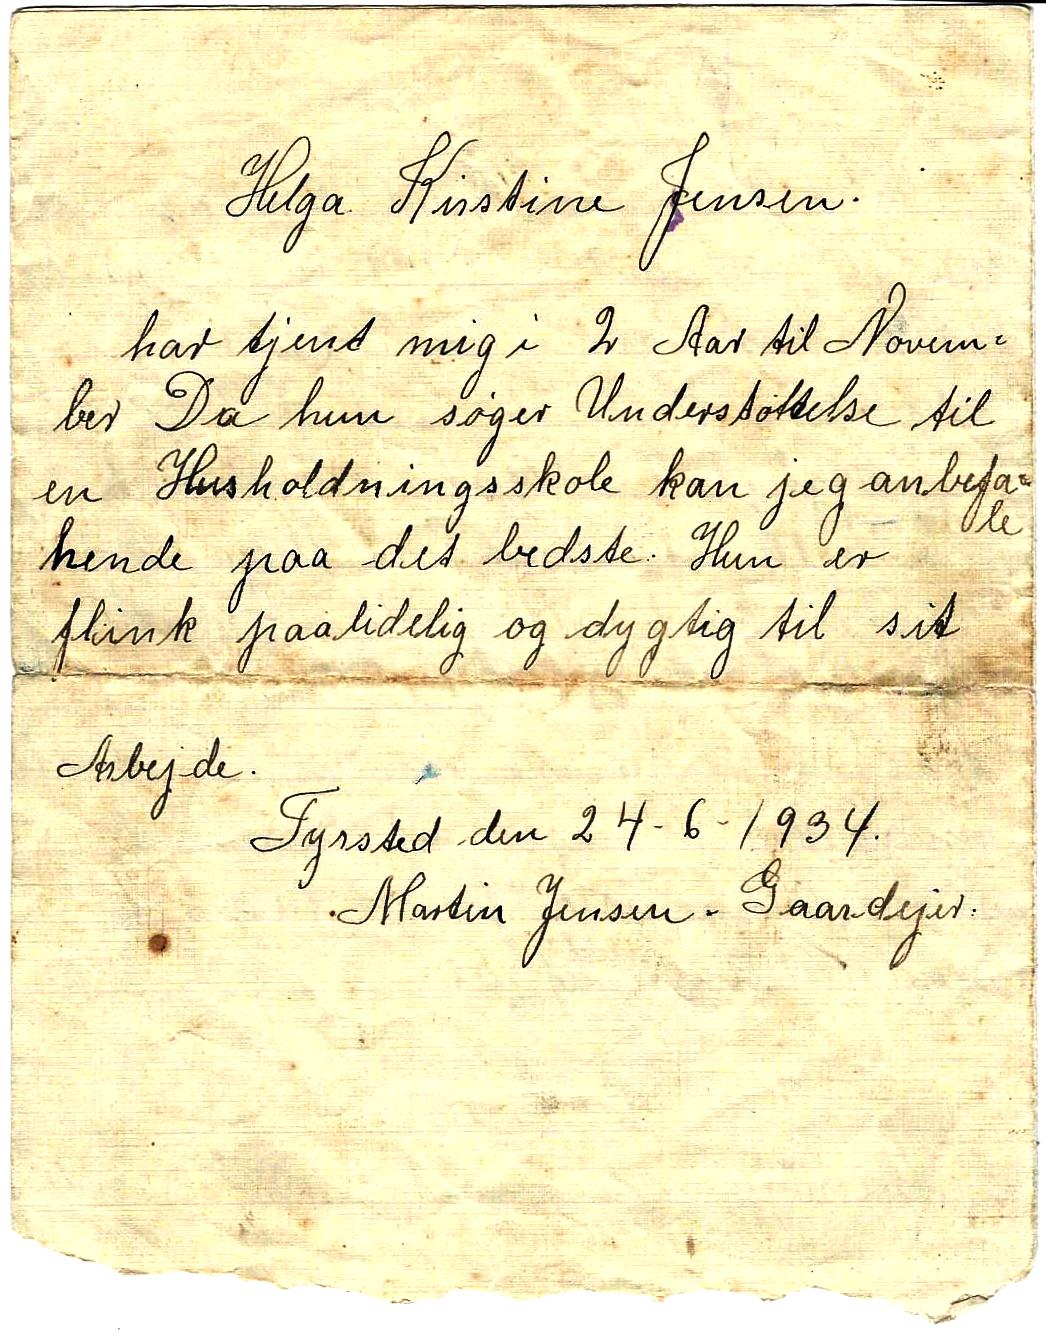 Helga Kirstine Jensen.
har tjent mig i 2 Aar til Novem=
ber Da hun søger Understøttelse til
en Husholdningsskole kan jeg anbefa=
le
hende paa det bedste. Hun er
flink paalidelig og dygtig til sit
Arbejde.
Fyrsted den 24-6-1934.
Martin Jensen - Gaardejer.